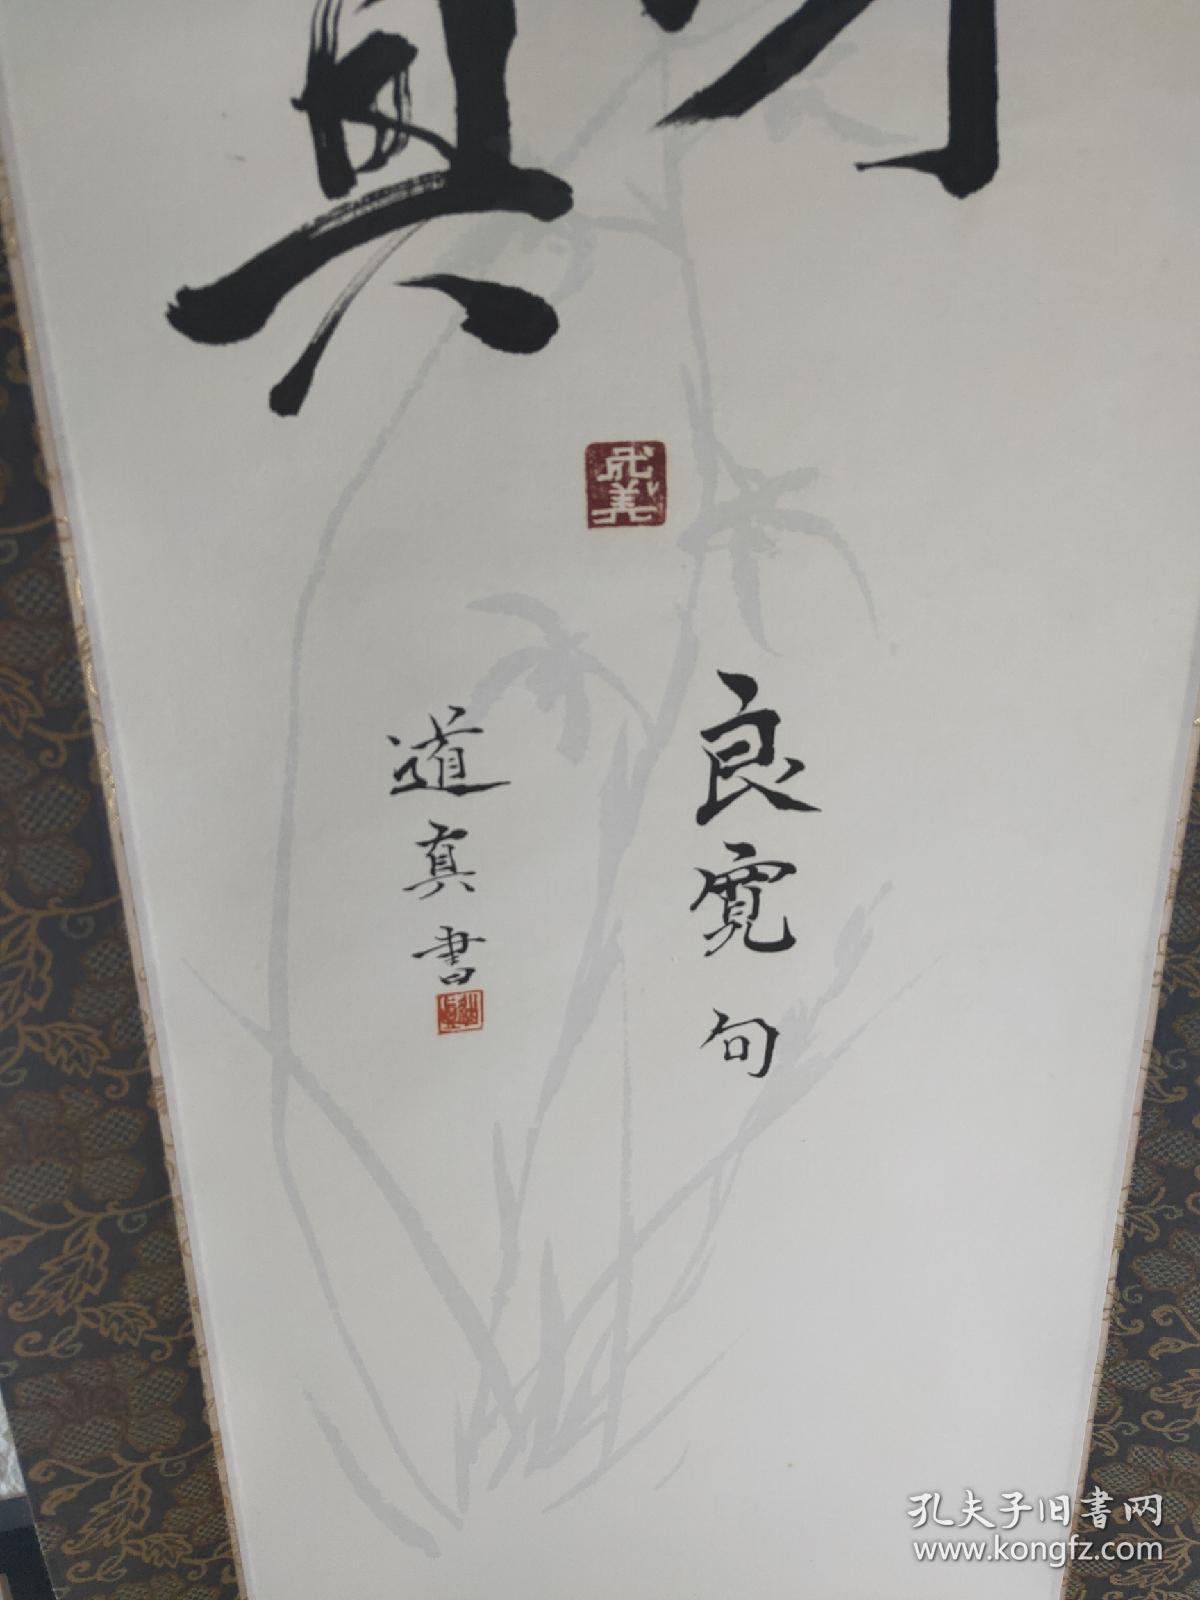 真
成美
良寛句
道真書
道真
孔夫子旧书网
www.kongfz.com